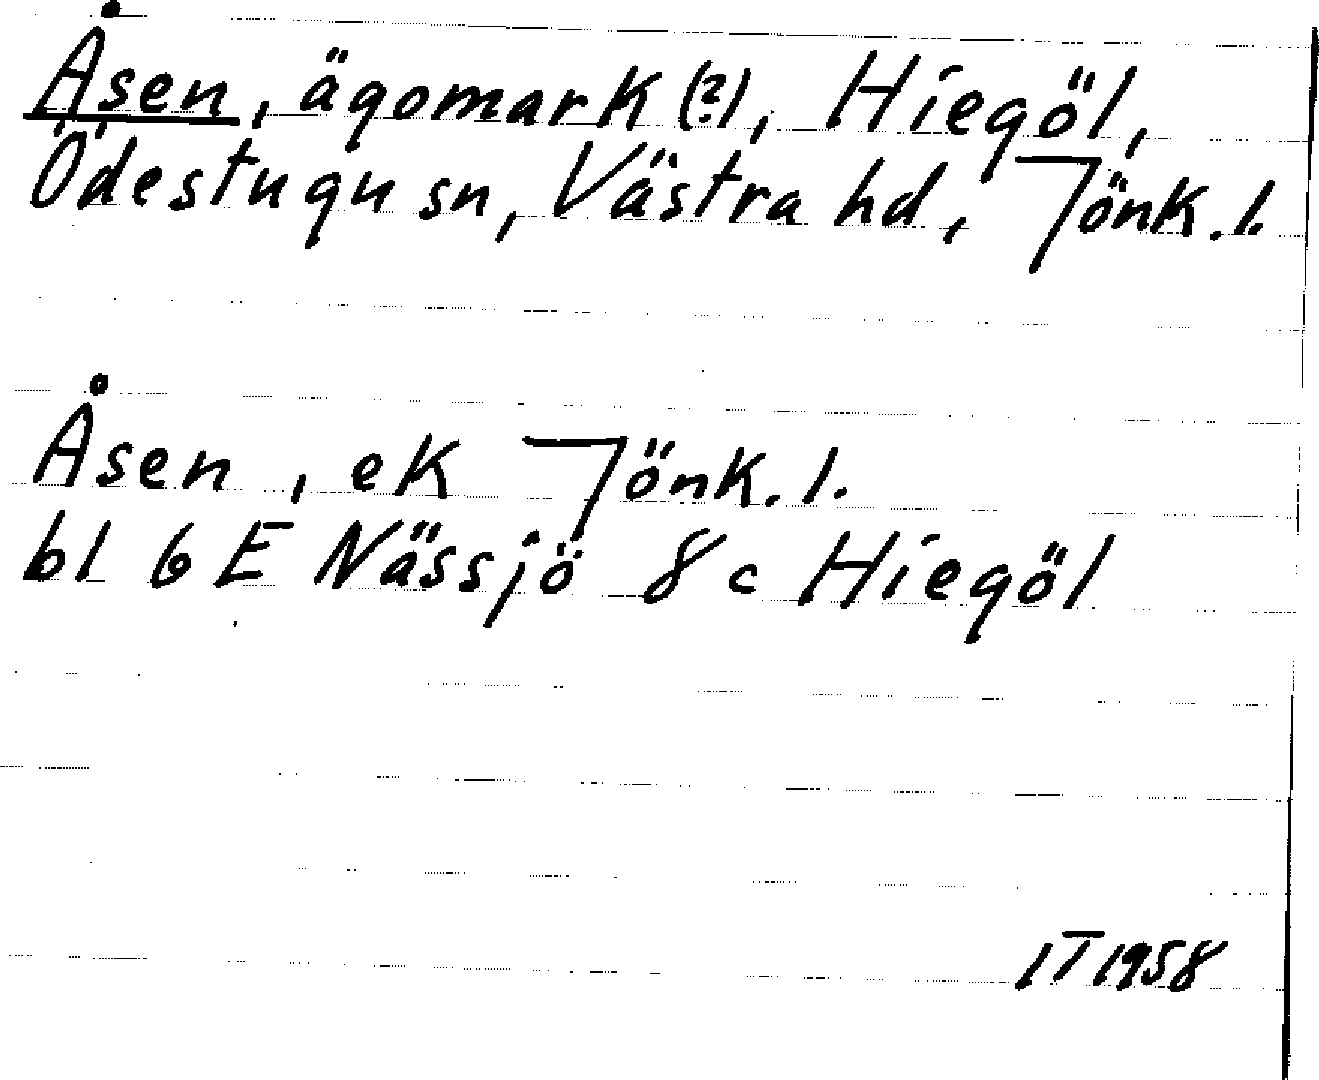 Åsen, ägomark (?), Hiegöl,
Ödestugu sn, Västra hd, Jönk. l.
Åsen, ek Jönk. l.
bl 6 E Nässjö 8 c Hiegöl
IT 1958